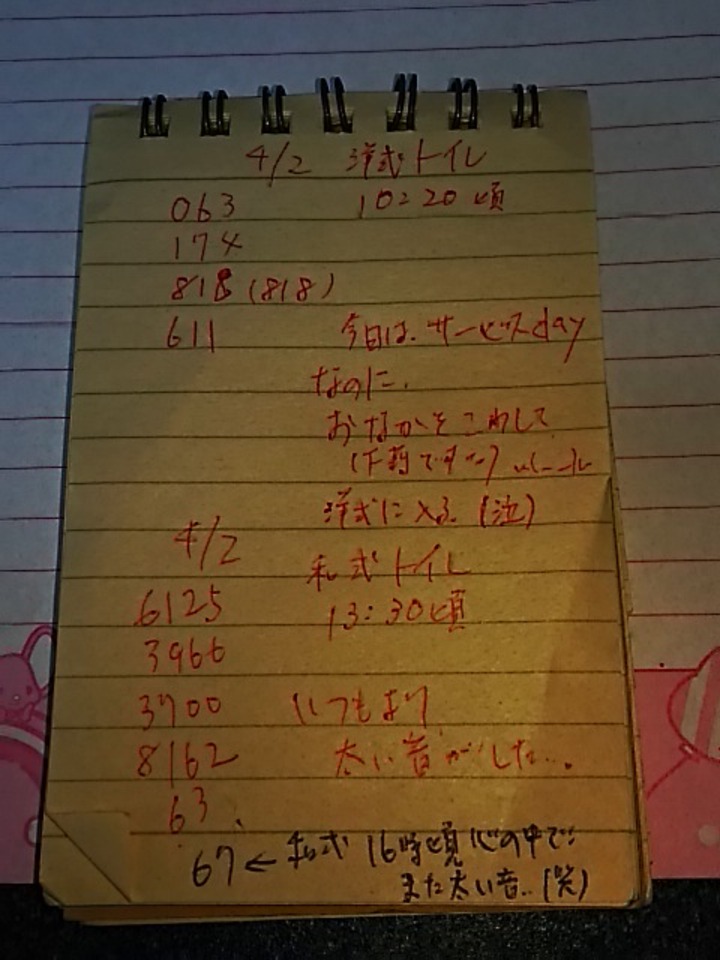 4/2 洋式トイレ
063 10:20頃
174
818 (818)
611 今日は、サービスday
なのに、
おなかをこわして
(下痢です…)
洋式に入る。(泣)
4/2 和式トイレ
6125 13:30頃
3966
3700 いつもより
8162 太い音がした…。
63、
67 ← 和式 16時頃 心の中で
また太い音..(笑)